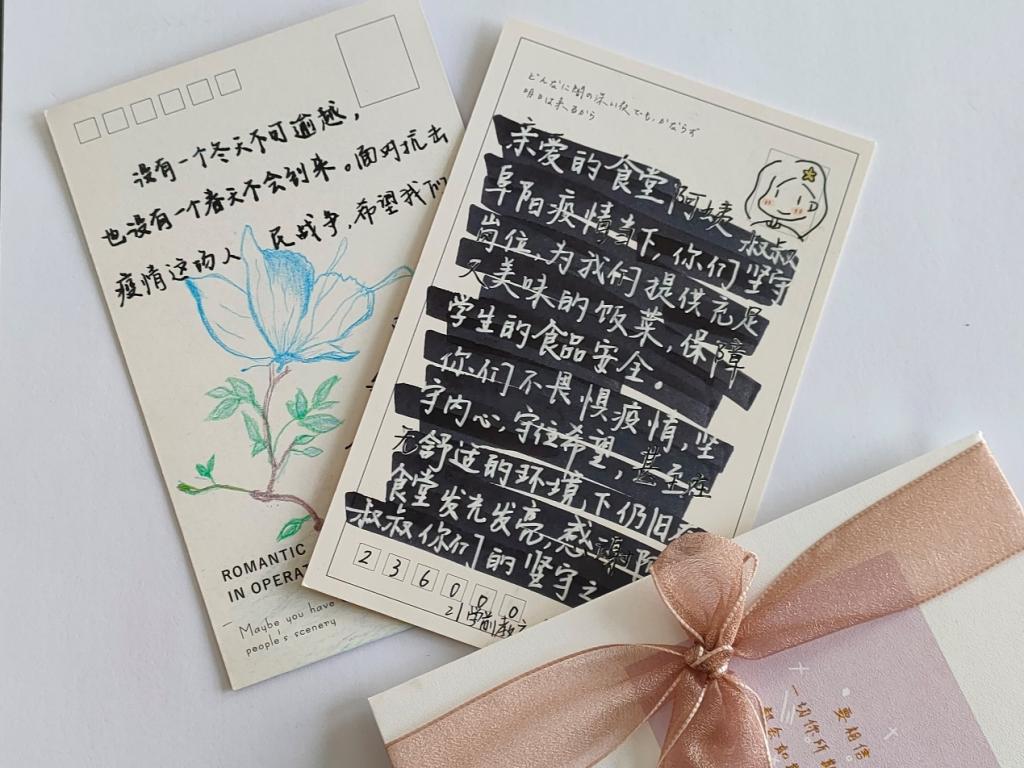 没有一个冬天不可逾越，
也没有一个春天不会到来。面对抗击
疫情这场人民战争，希望我们
ROMANTIC
IN OPERAT
Maybe you have
people's scenery
どんなに闇の深い夜でも、かならず
明日は来るから
亲爱的食堂阿姨 叔叔
阜阳疫情当下，你们坚守
岗位，为我们提供充足
又美味的饭菜，保障
学生的食品安全。
你们不畏惧疫情，坚
守内心，守住希望，甚至在
无舒适的环境下仍旧在
食堂发光发亮，感谢阿
叔叔你们的坚守之
236000
21学前教育
要相信
一切你所
都会如